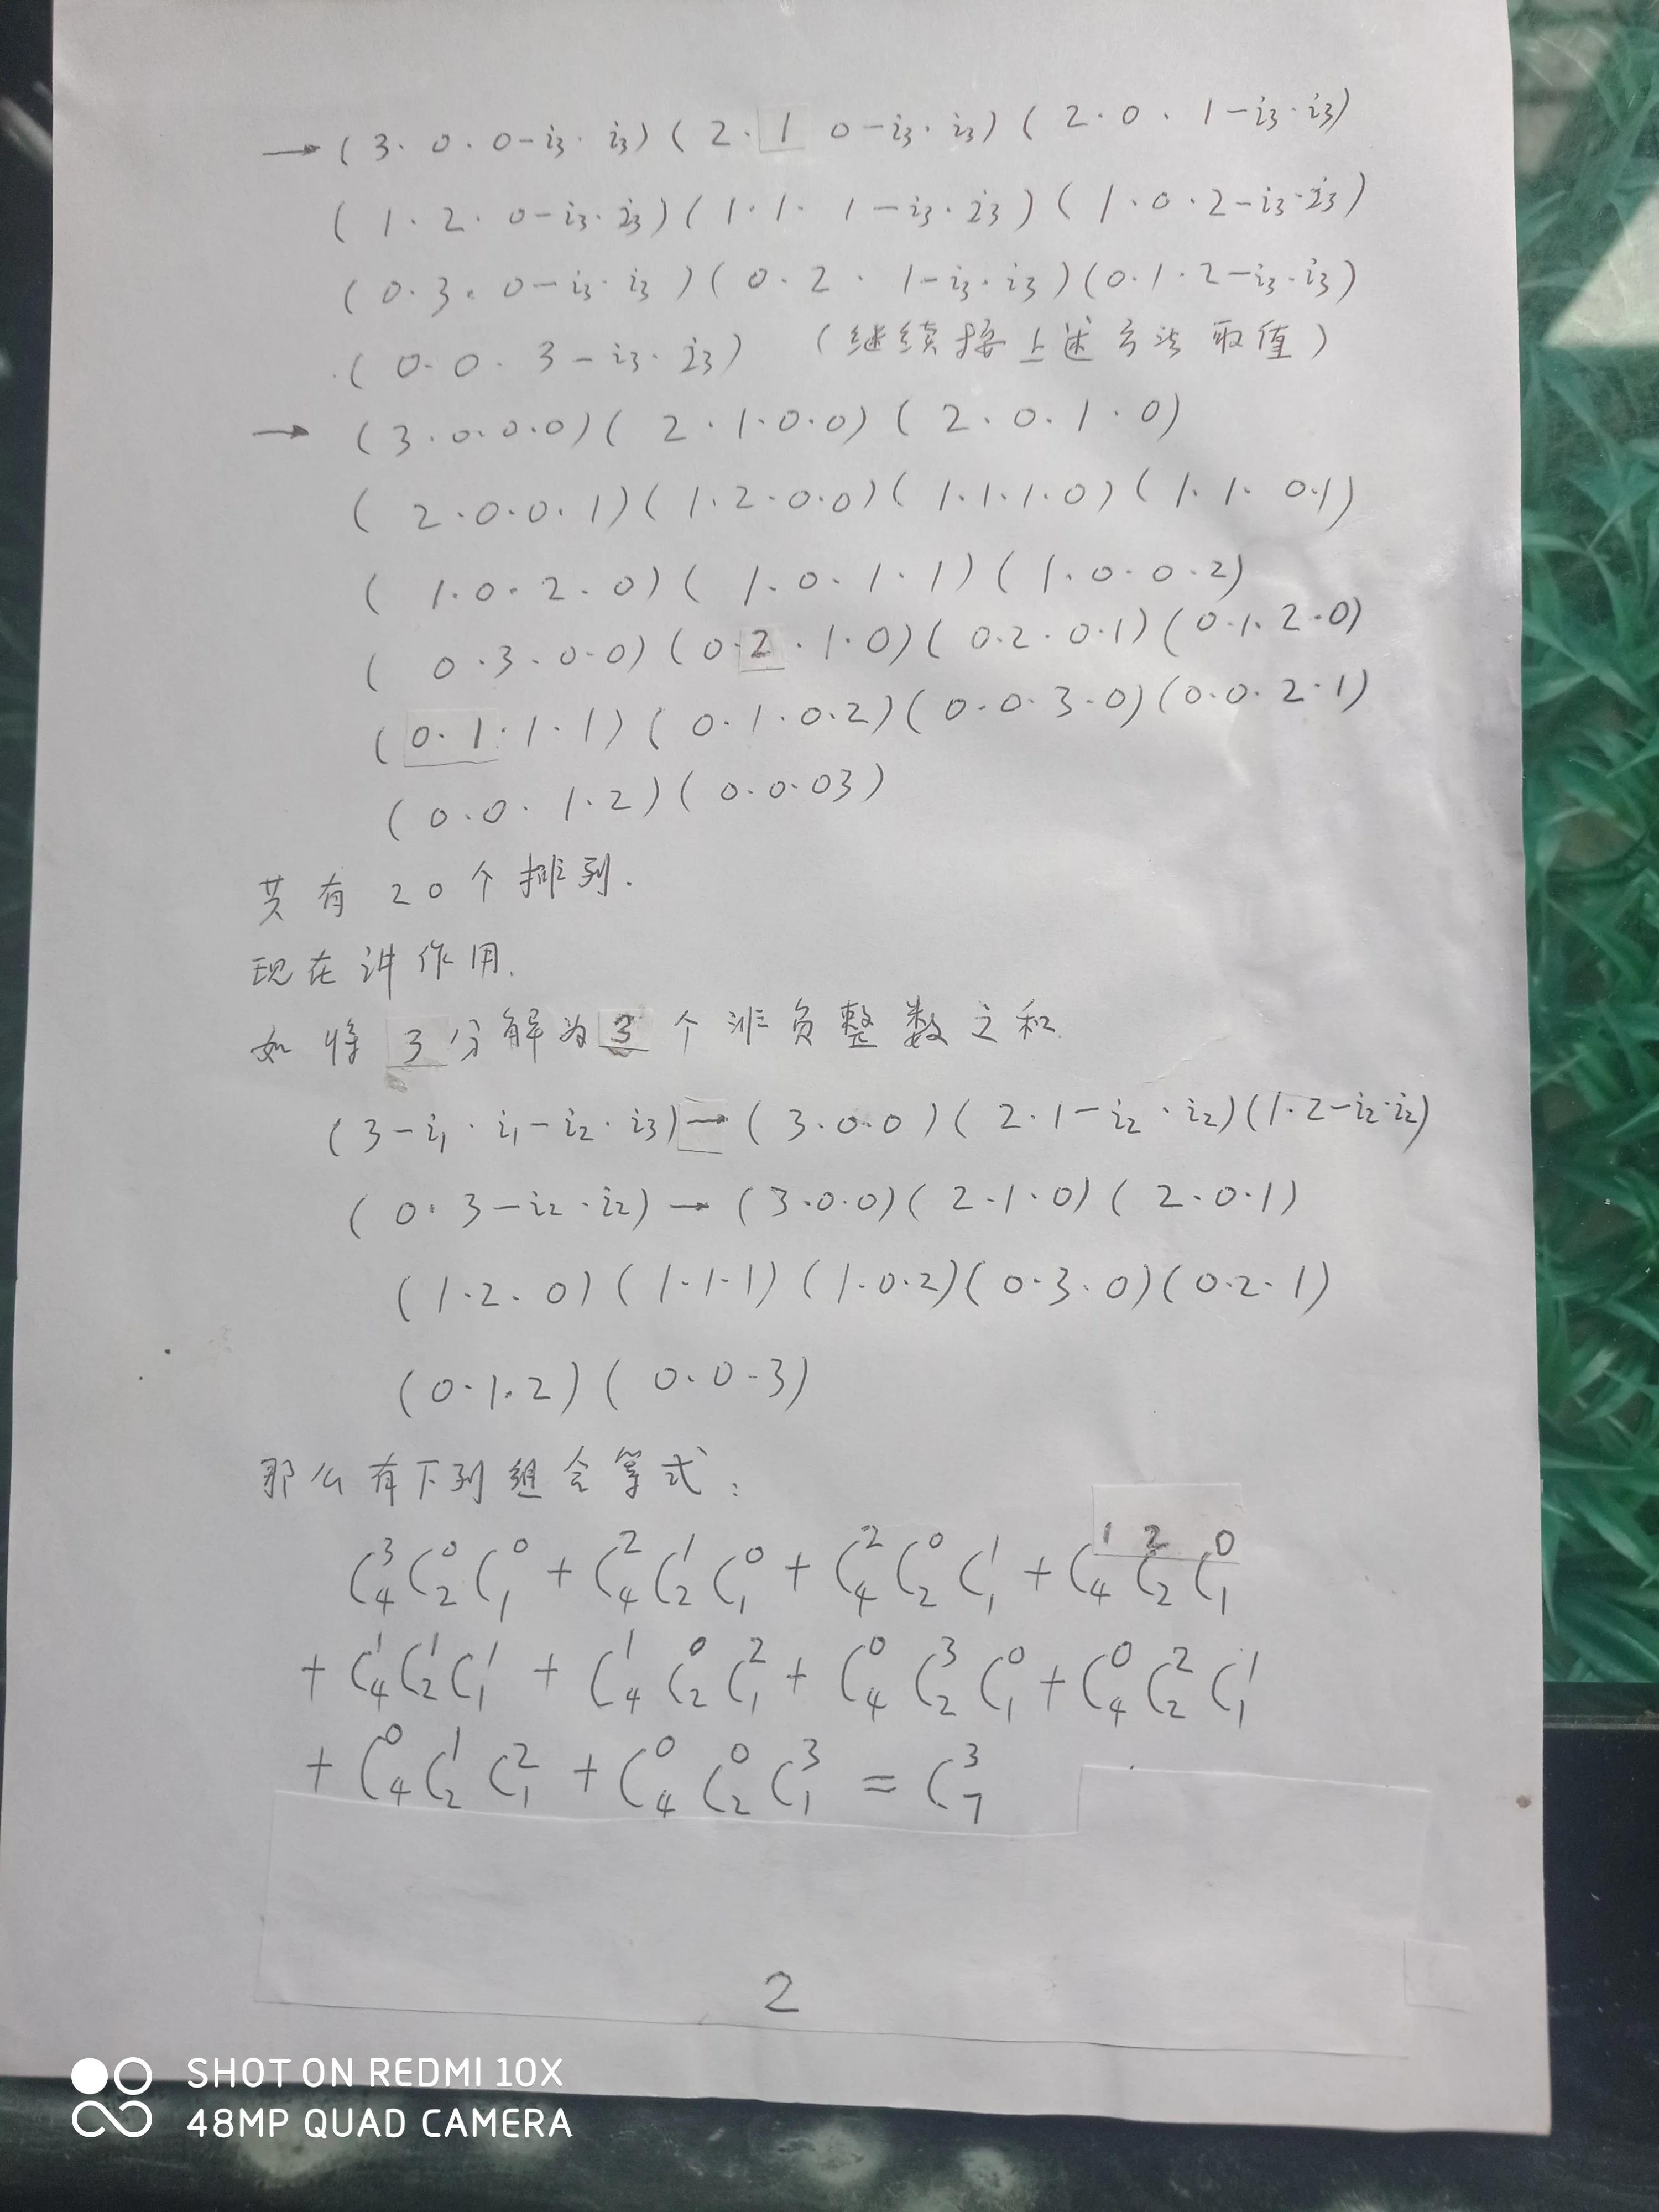 →(3·0·0-i₃·i₃)(2·1 0-i₃·i₃)(2·0·1-i₃·i₃)
(1·2·0-i₃·i₃)(1·1·1-i₃·i₃)(1·0·2-i₃·i₃)
(0·3·0-i₃·i₃)(0·2·1-i₃·i₃)(0·1·2-i₃·i₃)
(0·0·3-i₃·i₃) (继续按上述方法取值)
→(3·0·0·0)(2·1·0·0)(2·0·1·0)
(2·0·0·1)(1·2·0·0)(1·1·1·0)(1·1·0·1)
(1·0·2·0)(1·0·1·1)(1·0·0·2)
(0·3·0·0)(0·2·1·0)(0·2·0·1)(0·1·2·0)
(0·1·1·1)(0·1·0·2)(0·0·3·0)(0·0·2·1)
(0·0·1·2)(0·0·03)
共有20个排列.
现在讲作用.
如将3分解为3个非负整数之和.
(3-i₁·i₁-i₂·i₃)→(3·0·0)(2·1-i₂·i₂)(1·2-i₂·i₂)
(0·3-i₂·i₂)→(3·0·0)(2·1·0)(2·0·1)
(1·2·0)(1·1·1)(1·0·2)(0·3·0)(0·2·1)
(0·1·2)(0·0·3)
那么有下列组合等式:
C₄³C₂⁰C₁⁰+C₄²C₂¹C₁⁰+C₄²C₂⁰C₁¹+C₄¹C₂²C₁⁰
+C₄¹C₂¹C₁¹+C₄¹C₂⁰C₁²+C₄⁰C₂³C₁⁰+C₄⁰C₂²C₁¹
+C₄⁰C₂¹C₁²+C₄⁰C₂⁰C₁³=C₇³
2
SHOT ON REDMI 10X
48MP QUAD CAMERA